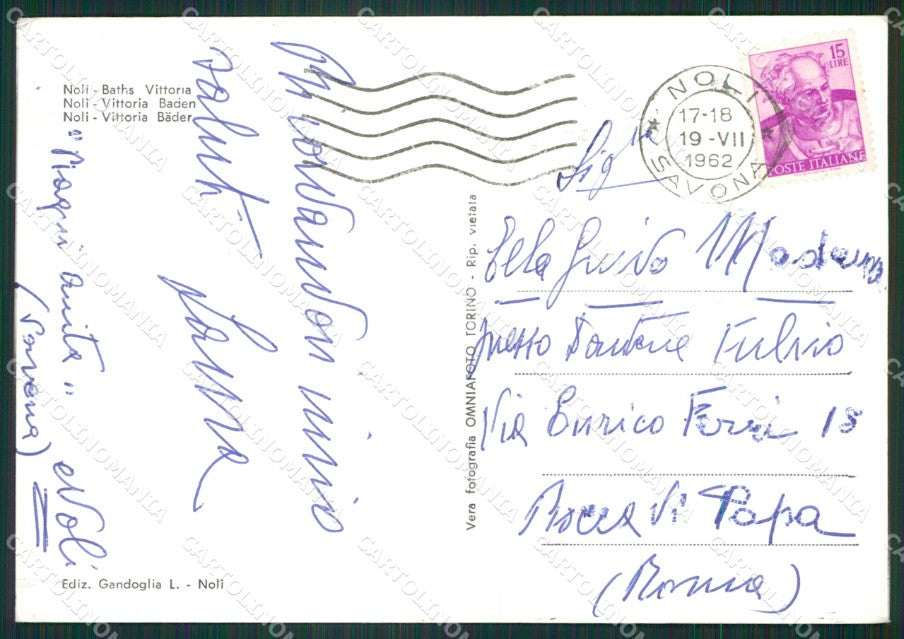 Noli - Baths Vittoria
Noli - Vittoria Baden
Noli - Vittoria Bäder
Ricordandovi invio
saluti
Laura
"Bagni Anita" Noli
(Savona)
Ediz. Gandoglia L. - Noli
Vera fotografia OMNIAFOTO TORINO - Rip. vietata
NOLI
17-18
19 -VII
1962
SAVONA
15
LIRE
POSTE ITALIANE
Sig
Guido
presso Fulvio
Via Enrico Ferri 18
Rocca di Papa
(Roma)
CARTOLINOMANIA